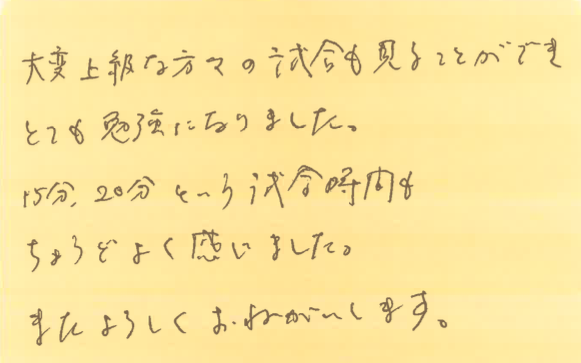 大変上級な方々の試合も見ることができ
とても勉強になりました。
15分、20分という試合時間も
ちょうどよく感じました。
またよろしくおねがいします。